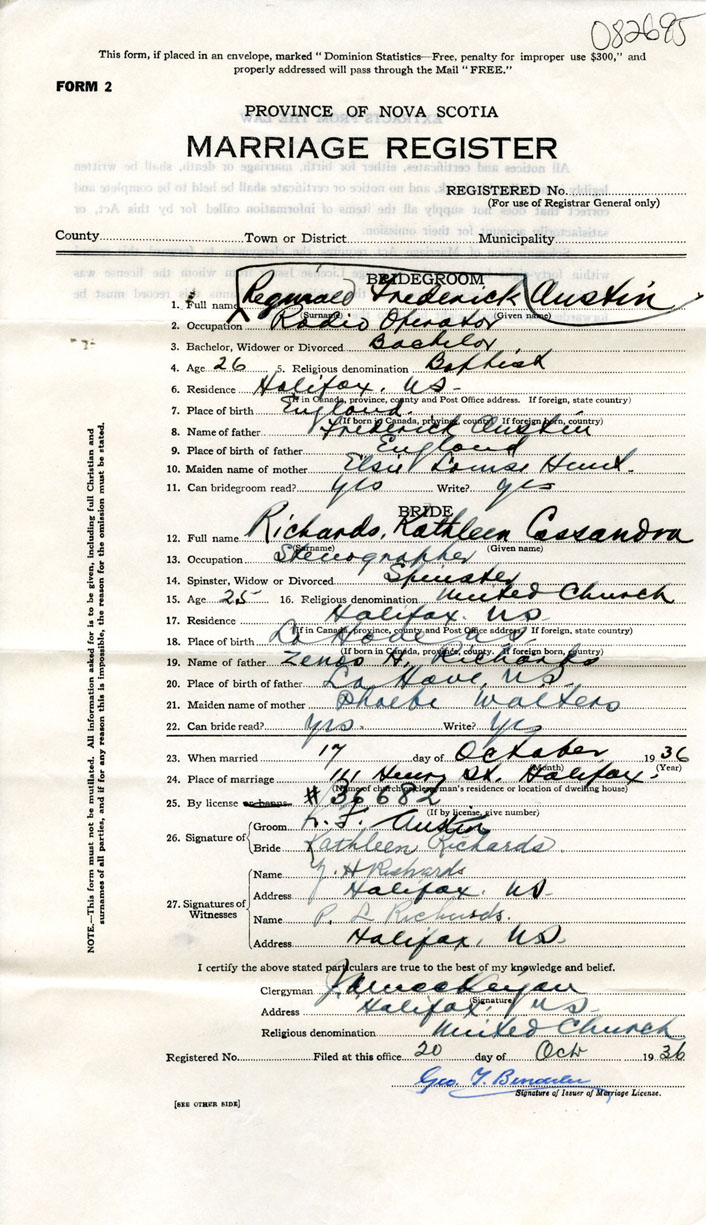 082695
This form, if placed in an envelope, marked "Dominion Statistics—Free, penalty for improper use $300," and
properly addressed will pass through the Mail "FREE."
FORM 2
PROVINCE OF NOVA SCOTIA
MARRIAGE REGISTER
REGISTERED No.
(For use of Registrar General only)
County Town or District Municipality
BRIDEGROOM
1. Full name Reginald Frederick Austin
(Surname) (Given name)
2. Occupation Radio Operator
3. Bachelor, Widower or Divorced Bachelor
4. Age 26 5. Religious denomination Baptist
6. Residence Halifax, N.S.
(If in Canada, province, county and Post Office address. If foreign, state country)
7. Place of birth England.
(If born in Canada, province, county. If foreign born, country)
8. Name of father Frederick Austin
9. Place of birth of father England
10. Maiden name of mother Elsie Louise Hunt.
11. Can bridegroom read? yes Write? yes
BRIDE
12. Full name Richards, Kathleen Cassandra
(Surname) (Given name)
13. Occupation Stenographer
14. Spinster, Widow or Divorced Spinster
15. Age 25 16. Religious denomination United Church
17. Residence Halifax. N.S.
(If in Canada, province, county and Post Office address. If foreign, state country)
18. Place of birth La Have N.S.
(If born in Canada, province, county. If foreign born, country)
19. Name of father Zenas H. Richards
20. Place of birth of father La Have, N.S.
21. Maiden name of mother Phoebe Walters
22. Can bride read? Yes. Write? Yes
23. When married 17 day of October 1936
(Month) (Year)
24. Place of marriage 141 Henry St. Halifax.
(Name of church, clergyman's residence or location of dwelling house)
25. By license or banns # 36682
(If by license, give number)
26. Signature of Groom R. F. Austin
Bride Kathleen Richards.
27. Signatures of Witnesses Name H Richards
Address Halifax. N.S.
Name P. L Richards.
Address Halifax, N.S.
I certify the above stated particulars are true to the best of my knowledge and belief.
Clergyman
(Signature)
Address Halifax, N.S.
Religious denomination United Church
Registered No. Filed at this office 20 day of Oct 1936
Geo. T.
Signature of Issuer of Marriage License.
[SEE OTHER SIDE]
NOTE.—This form must not be mutilated. All information asked for is to be given, including full Christian and
surnames of all parties, and if for any reason this is impossible, the reason for the omission must be stated.